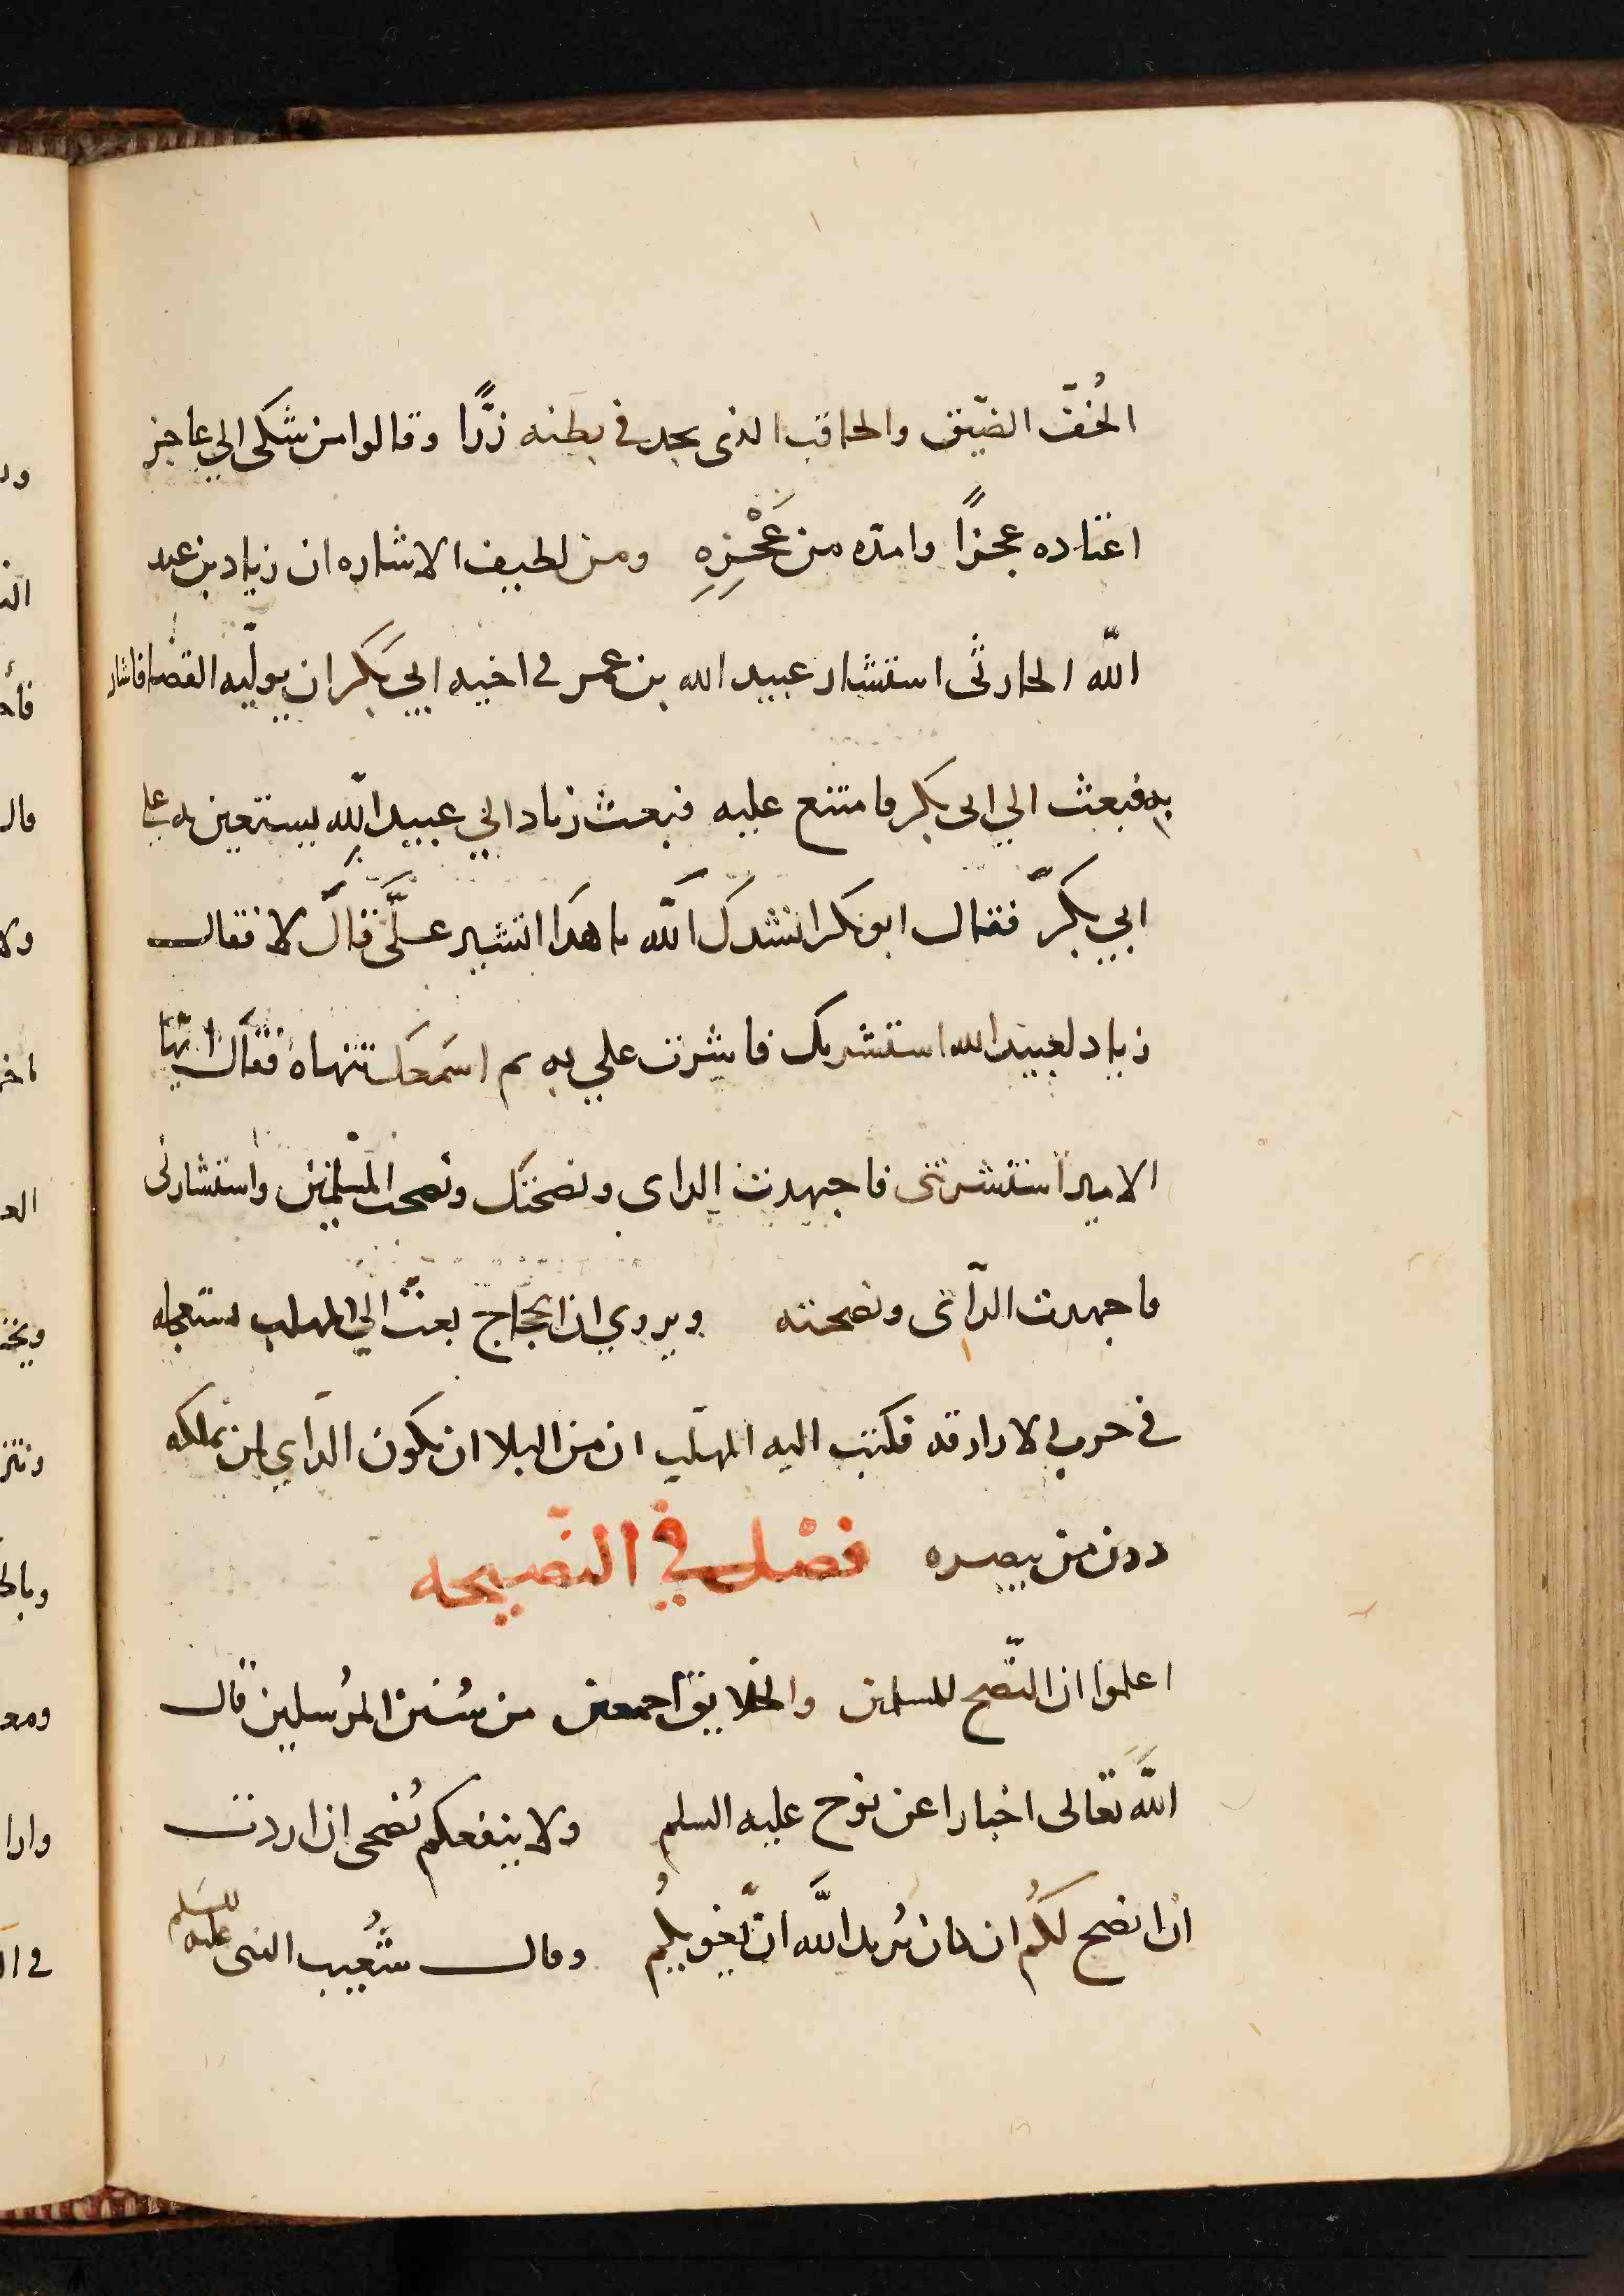 الخُفّ الضيّق والحاقب الذى يجد في بطنه زرًّا وقالوا من شكى الي عاجز
اعتاده عجزًا وامدّه من عَجْزِهِ ومن لطيف الاشاره ان زياد بن عبد
اللّه الحارثى استشار عبيد الله بن عمر في اخيه ابي بكر ان يوليّه القضا فاشار
به فبعث الي ابى بكر فامتنع عليه فبعث زياد الي عبيد اللّه يستعين به على
ابي بكر فقال ابو بكر انشدك اللّه ما هذا اتشير علَّى قال لا فقال
زياد لعبيد الله استشرتك فاشرت علي به ثم اسمعك تنهاه فقال ايّها
الامير استشرتنى فاجهدت الراى ونصحتك ونصحت المسلمين واستشارنى
فاجهدت الرأى ونصحته ويروي ان الحجّاج بعث الي المهلب يستعجله
في حرب الازارقه فكتب اليه المهلّب ان من البلا ان يكون الرّاي لمن يملكه
دون من يبصره فصْل في النّصيحه
اعلموا ان النّصح للمسلمين والخلايق اجمعين من سُنن المرُسلين قال
اللَّه تعالى اخبارا عن نوح عليه السلم ولا ينفعكم نُصحى ان اردت
ان انصح لكُم ان كان يُريد اللَّه ان يّغويكُم وقال شُعيب النبى عليه السلم